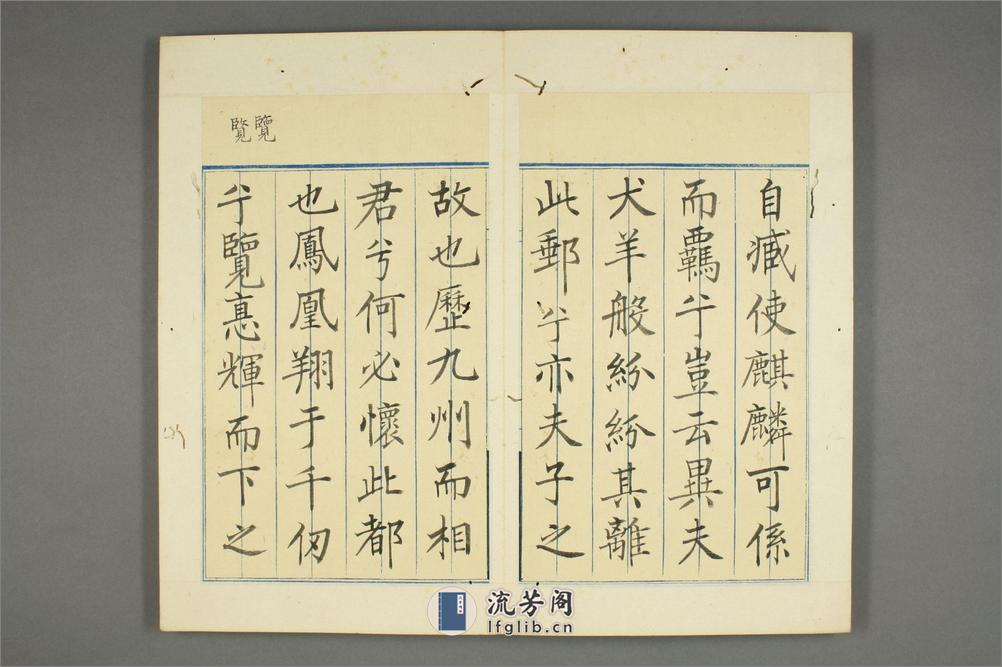 自臧使麒麟可係
而羈兮豈云異夫
犬羊般紛紛其離
此郵兮亦夫子之
故也歷九州而相
君兮何必懷此都
也鳳凰翔于千仞
兮覽悳輝而下之
覽覽
流芳阁
lfglib.cn